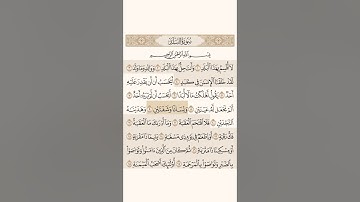 سُورَةُ البَلَدِ
بِسْمِ ٱللَّهِ ٱلرَّحْمَٰنِ ٱلرَّحِيمِ
لَآ أُقْسِمُ بِهَٰذَا ٱلْبَلَدِ ١ وَأَنتَ حِلٌّۢ بِهَٰذَا ٱلْبَلَدِ ٢ وَوَالِدٍ وَمَا وَلَدَ ٣
لَقَدْ خَلَقْنَا ٱلْإِنسَٰنَ فِى كَبَدٍ ٤ أَيَحْسَبُ أَن لَّن يَقْدِرَ عَلَيْهِ
أَحَدٌ ٥ يَقُولُ أَهْلَكْتُ مَالًا لُّبَدًا ٦ أَيَحْسَبُ أَن لَّمْ يَرَهُۥٓ أَحَدٌ ٧
أَلَمْ نَجْعَل لَّهُۥ عَيْنَيْنِ ٨ وَلِسَانًا وَشَفَتَيْنِ ٩ وَهَدَيْنَٰهُ
ٱلنَّجْدَيْنِ ١٠ فَلَا ٱقْتَحَمَ ٱلْعَقَبَةَ ١١ وَمَآ أَدْرَىٰكَ مَا ٱلْعَقَبَةُ ١٢
فَكُّ رَقَبَةٍ ١٣ أَوْ إِطْعَٰمٌ فِى يَوْمٍ ذِى مَسْغَبَةٍ ١٤ يَتِيمًا ذَا مَقْرَبَةٍ ١٥
أَوْ مِسْكِينًا ذَا مَتْرَبَةٍ ١٦ ثُمَّ كَانَ مِنَ ٱلَّذِينَ ءَامَنُوا۟ وَتَوَاصَوْا۟
بِٱلصَّبْرِ وَتَوَاصَوْا۟ بِٱلْمَرْحَمَةِ ١٧ أُو۟لَٰٓئِكَ أَصْحَٰبُ ٱلْمَيْمَنَةِ ١٨